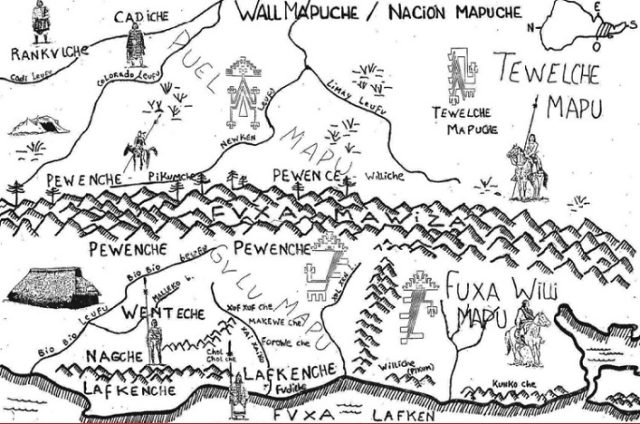 WALLMAPUCHE / NACIÓN MAPUCHE
CADICHE
RANKVLCHE
CADI LEUFU
COLORADO LEUFU
PUEL
MAPU
NEWKEN LEUFU
LIMAY LEUFU
TEWELCHE
MAPUCHE
TEWELCHE
MAPU
N
E
O
PEWENCHE
PIKUMCHE
PEWENCE
Williche
FVXA MAWIZA
PEWENCHE
PEWENCHE
BIO BIO LEUFU
BIO BIO LEUFU
GVLU MAPU
WENTECHE
XUF XUF CHE
MAKEWE CHE
FOROWE CHE
CHOL
CHOL CHE
NAGCHE
LAFKENCHE
LAFKENCHE
Fudiche
Williche
(Pikum)
FUXA Willi
MAPU
KUNKO CHE
FVXA LAFKEN